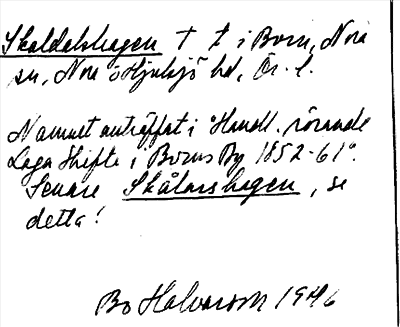 Skaldalshagen † t. i Born, Nora
sn, Nora o Hjulsjö hd, Ör. l.
Namnet anträffat i "Handl. rörande
Laga Skifte i Borns By 1852-61".
Senare Skålarshagen, se
detta!
Bo Halvarson 1946